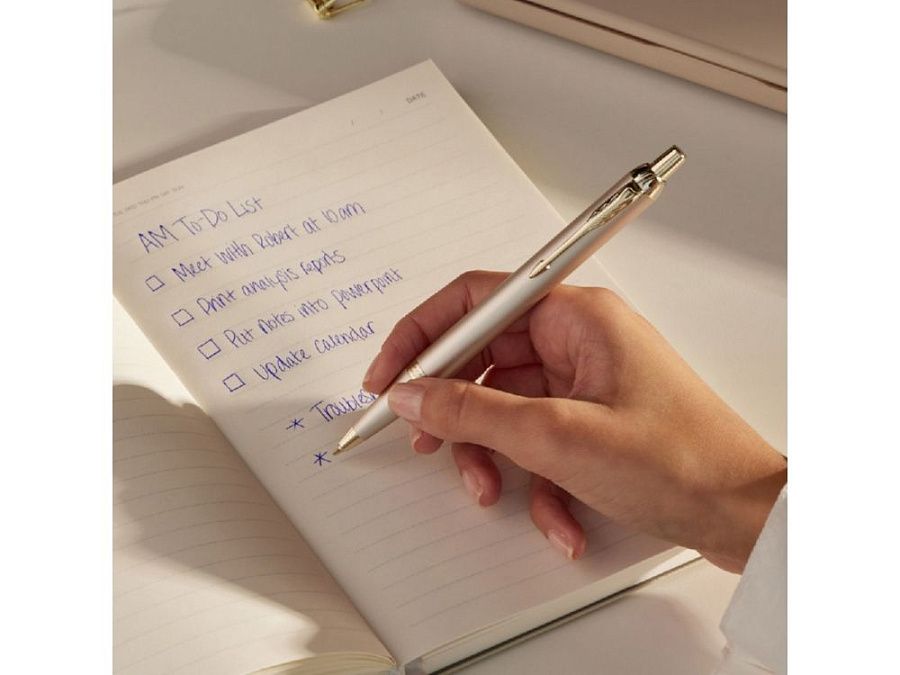 DATE
AM To-Do List
Meet with Robert at 10am
Print analysis reports
Put notes into powerpoint
update calendar
* Troubles
*